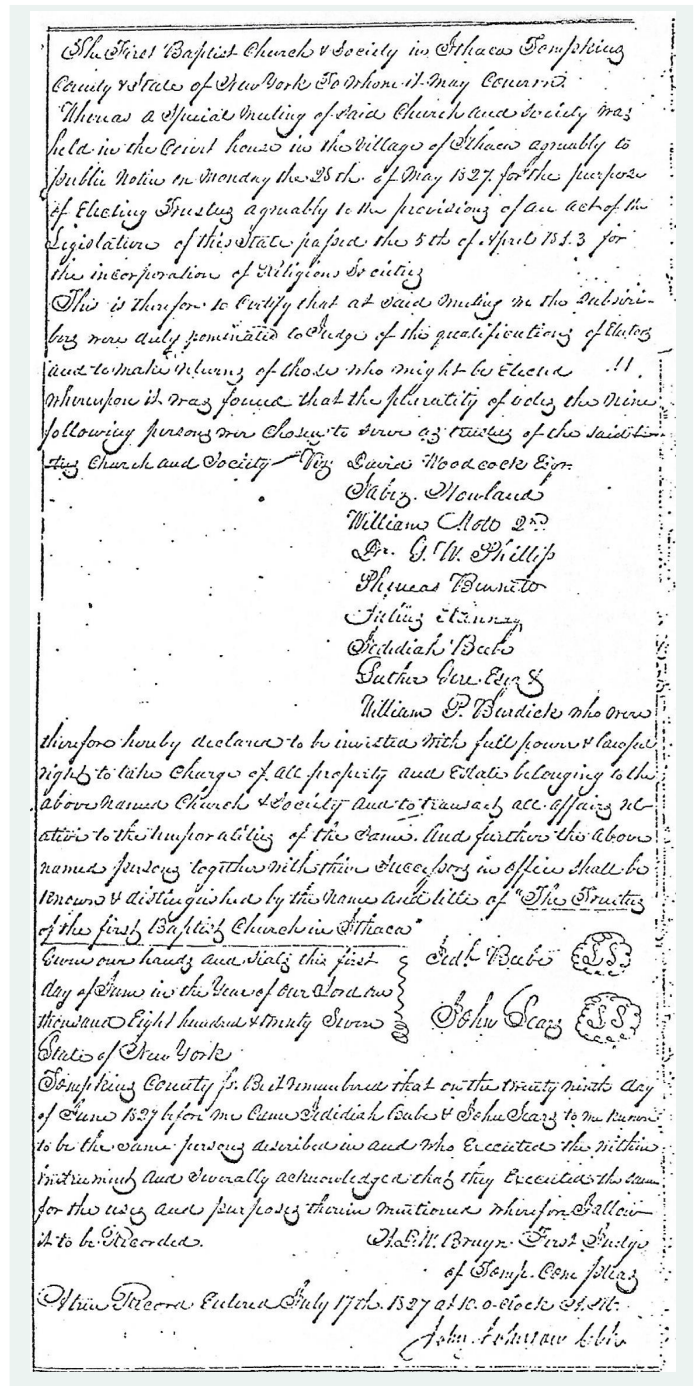 The First Baptist Church & Society in Ithaca Tompkins
County & State of New York To whom it may Concern.
Whereas a Special Meeting of said Church and Society was
held in the Court house in the Village of Ithaca agreeably to
public Notice on Monday the 28th of May 1827 for the purpose
of Electing Trustees agreeably to the provisions of an act of the
Legislature of this State passed the 5th of April 1813 for
the incorporation of Religious Societies
This is therefore to Certify that at said meeting we the Subscri-
bers were duly nominated to Judge of the qualifications of Electors
and to make returns of those who might be Elected
whereupon it was found that the plurality of votes the nine
following persons were Chosen to serve as trustees of the said
Church and Society Viz David Woodcock Esqr.
Jabez Howland
William Mott 2nd
Dr. G. W. Phillips
Phineas Burnett
Julius
Jedidiah Beebe
Luther Gere Esqr &
William P. Burdick who were
therefore hereby declared to be invested with full power & lawful
right to take Charge of all property and Estate belonging to the
above named Church & Society and to transact all affairs rel-
ative to the temporalities of the Same. And further the above
named persons together with their Successors in office shall be
Known & distinguished by the Name and title of "The Trustees
of the first Baptist Church in Ithaca"
Given our hands and Seals this first Jedh Beebe LS
day of June in the Year of Our Lord one
thousand Eight hundred & twenty Seven John Sears LS
State of New York
Tompkins County ss. Be it remembered that on the twenty ninth day
of June 1827 before me Came Jedidiah Beebe & John Sears to me known
to be the same persons described in and who Executed the within
instrument and severally acknowledged that they Executed the same
for the uses and purposes therein mentioned wherefore I allow
it to be Recorded. A. D. W. Bruyn. First Judge
of Tomp. Com pleas
A true Record Entered July 17th 1827 at 10 o clock A.M.
John Johnson Clk